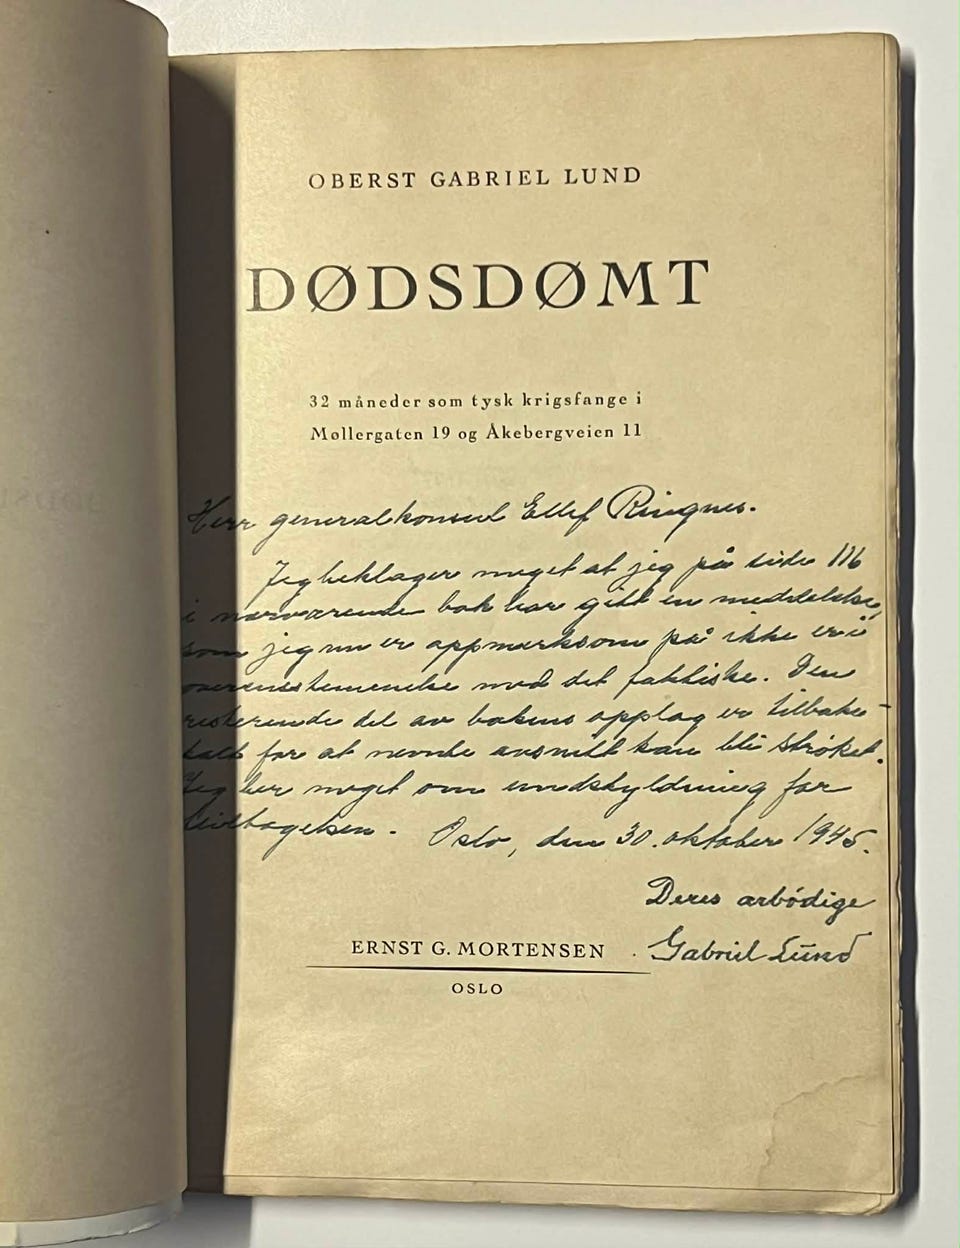 OBERST GABRIEL LUND
DØDSDØMT
32 måneder som tysk krigsfange i
Møllergaten 19 og Åkebergveien 11
Herr generalkonsul Ellef Ringnes.
Jeg beklager meget at jeg på side 116
i nærværende bok har gitt en meddelelse,
som jeg nu er oppmerksom på ikke er i
overensstemmelse med det faktiske. Den
resterende del av bokens opplag er tilbake-
kalt for at nevnte avsnitt kan bli strøket.
Jeg ber meget om undskyldning for
feiltagelsen. Oslo, den 30. oktober 1945.
Deres arbödige
Gabriel Lund
ERNST G. MORTENSEN
OSLO